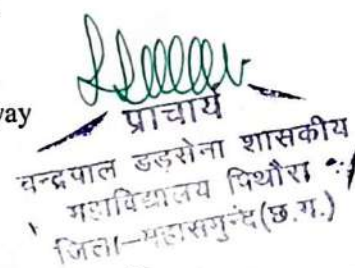 way
प्राचार्य
चन्द्रपाल डड़सेना शासकीय
महाविद्यालय पिथौरा
जिला-महासमुन्द (छ.ग.)